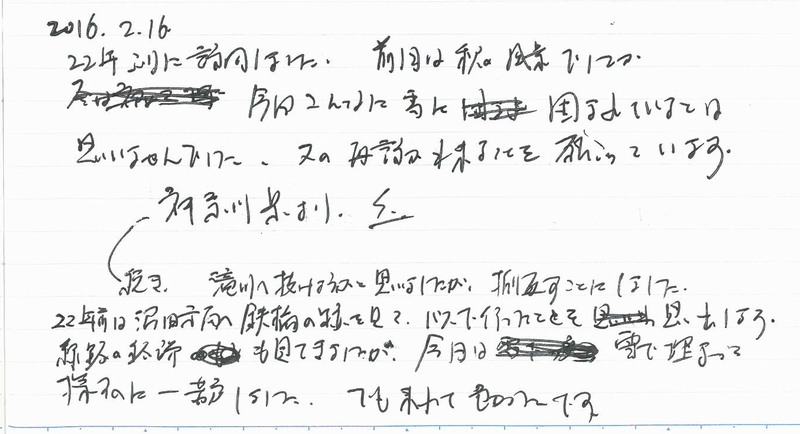 2016.2.16
22年ぶりに訪問しました。 前回は秋の風景でしたが
今回こんなに雪に 囲まれているとは
思いませんでした。又の再訪出来ることを願っています。
神奈川県より。
続き。 滝川へ抜けようと思いましたが、折り返すことにしました。
22年前は沼田方向へ鉄橋の跡を見て、バスで行ったことを 思い出します。
線路の 跡 も見てますが、今回は 雪で埋まって
に一 しました。 でも来れて よかったです